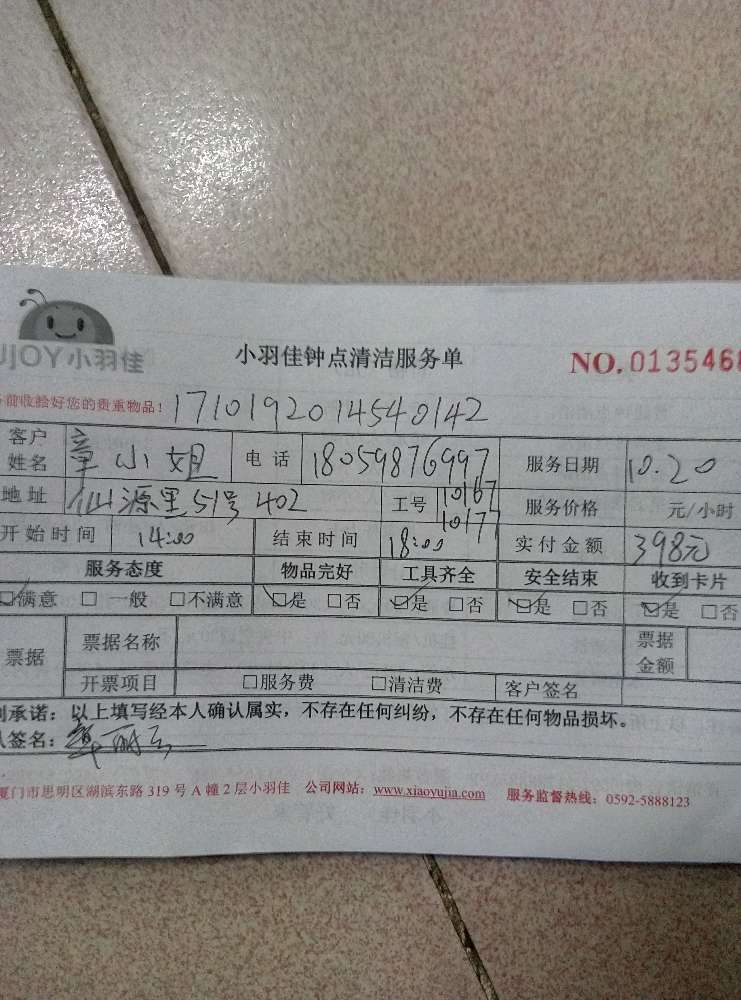 UJOY小羽佳
小羽佳钟点清洁服务单 NO.0135468
前收拾好您的贵重物品! 1710192014540142
客户姓名 章小姐 电话 18059876997 服务日期 10.20
地址 仙源里51号402 工号 10167 10177 服务价格 元/小时
开始时间 14:00 结束时间 18:00 实付金额 398元
服务态度 物品完好 工具齐全 安全结束 收到卡片
☑满意 □一般 □不满意 ☑是 □否 ☑是 □否 ☑是 □否 ☑是 □否
票据 票据名称 票据金额
开票项目 □服务费 □清洁费 客户签名
承诺：以上填写经本人确认属实，不存在任何纠纷，不存在任何物品损坏。
签名：
厦门市思明区湖滨东路319号A幢2层小羽佳 公司网站：www.xiaoyujia.com 服务监督热线：0592-5888123